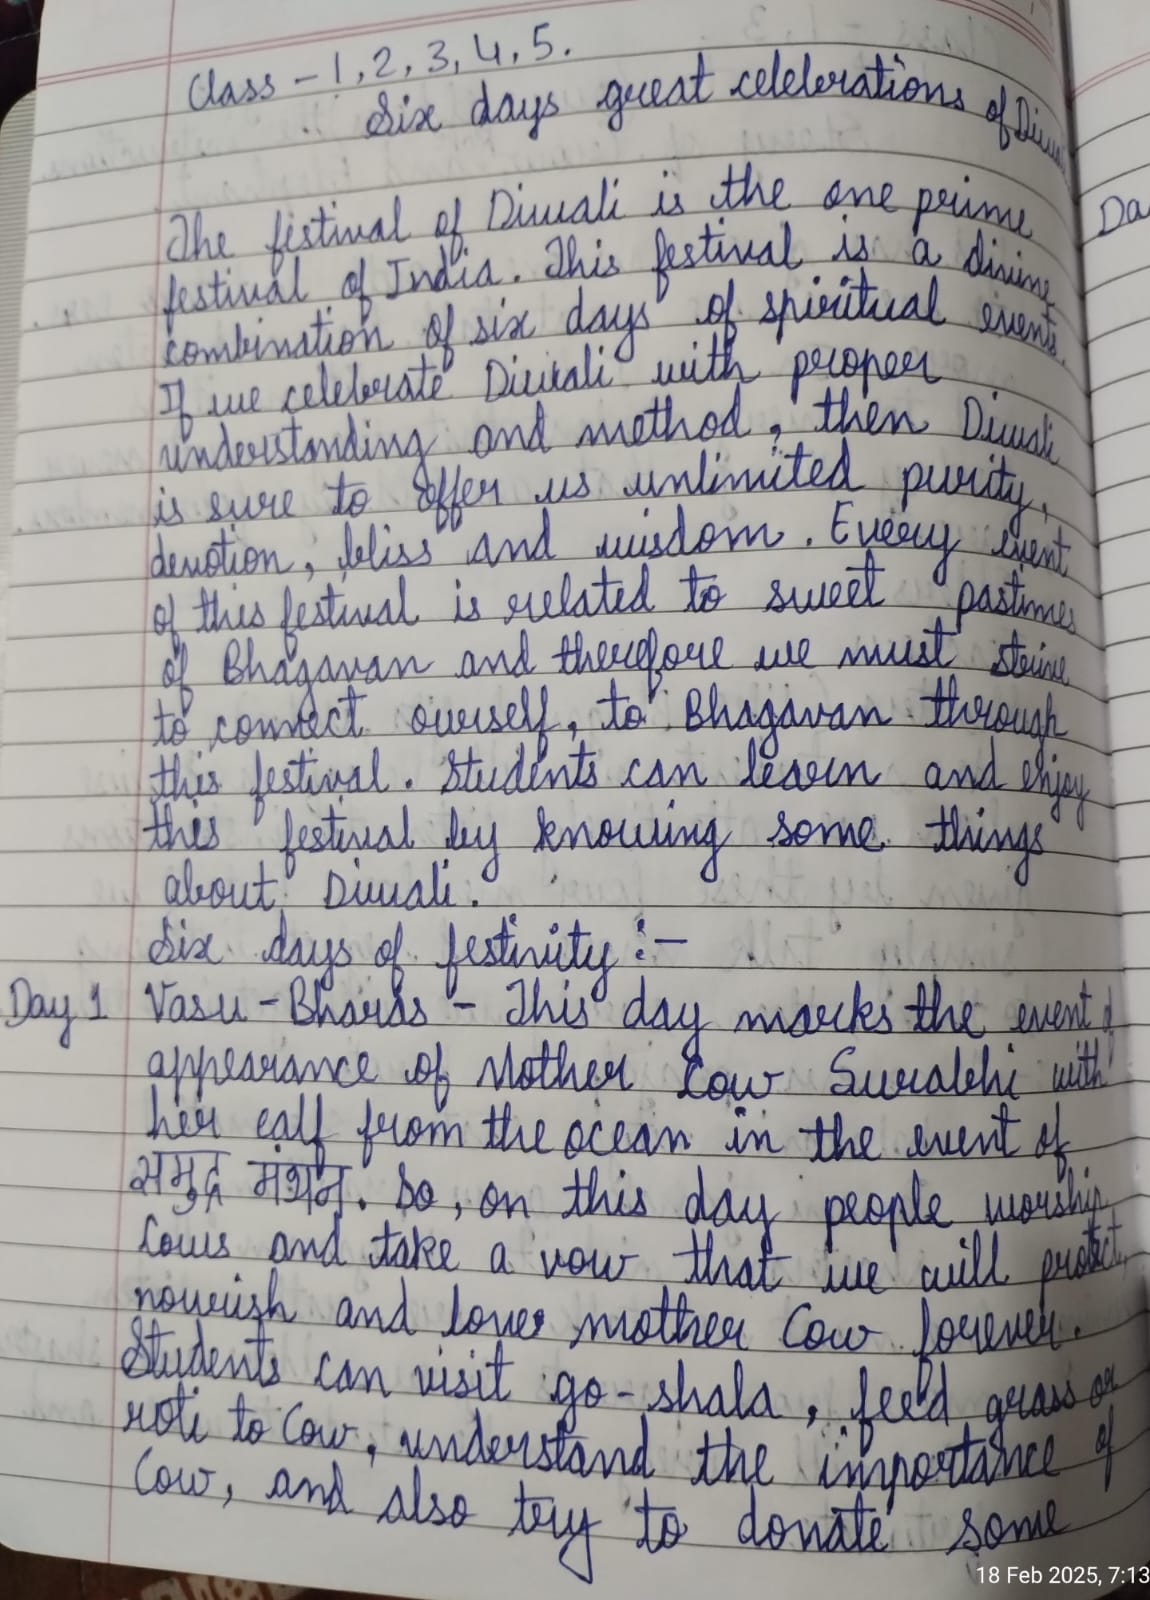 Class - 1, 2, 3, 4, 5.
Six days great celebrations of
The festival of Diwali is the one prime
festival of India. This festival is a divine
combination of six days of spiritual events.
If we celebrate Diwali with proper
understanding and method, then Diwali
is sure to offer us unlimited purity,
devotion, bliss and wisdom. Every event
of this festival is related to sweet pastimes
of Bhagavan and therefore we must strive
to connect ourself, to Bhagavan through
this festival. Students can learn and enjoy
this festival by knowing some things
about Diwali.
Six days of festivity :-
Day 1 Vasu-Bharas - This day marks the event of
appearance of Mother Cow Surabhi with
her calf from the ocean in the event of
समुद्र मंथन. So, on this day people worship
Cows and take a vow that we will protect,
nourish and love mother Cow forever.
Students can visit go-shala, feed grass or
roti to Cow, understand the importance of
Cow, and also try to donate some
Da
18 Feb 2025, 7:13